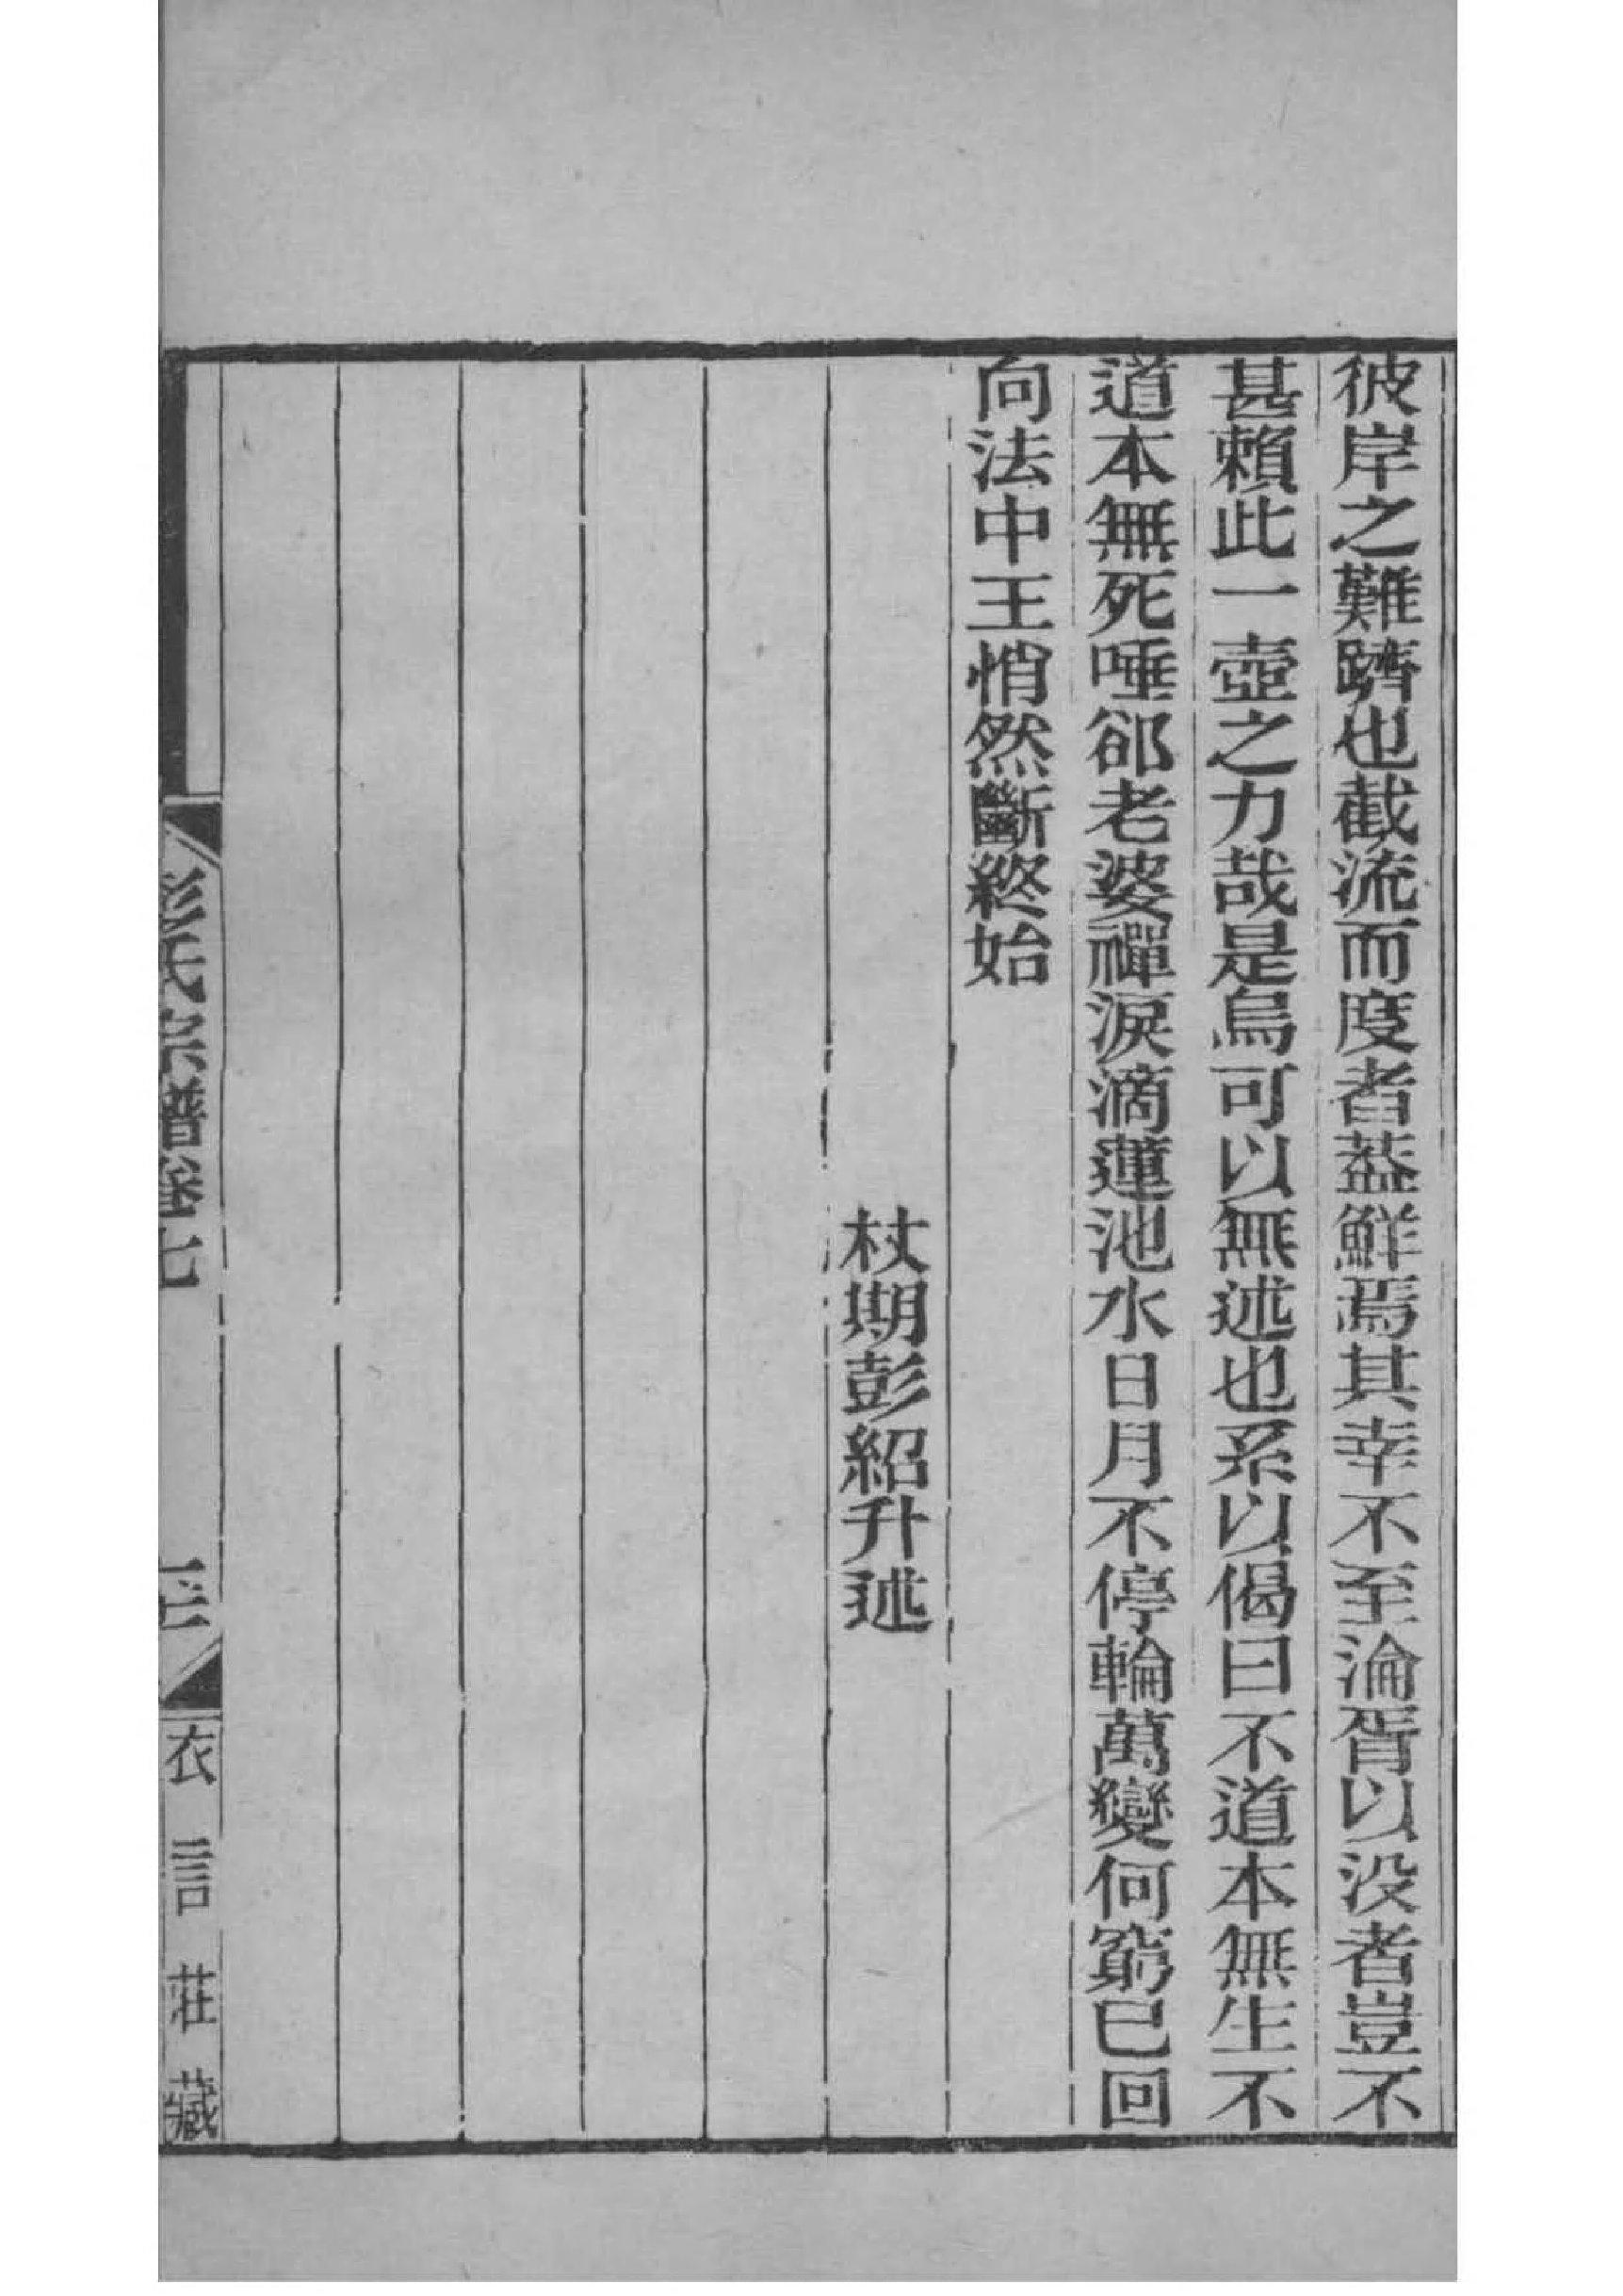 彼岸之難躋也截流而度者葢鮮焉其幸不至淪胥以没者豈不
甚賴此一壺之力哉是烏可以無述也系以偈曰不道本無生不
道本無死唾郤老婆禪淚滴蓮池水日月不停輪萬變何窮已回
向法中王悄然斷終始
杖期彭紹升述
彭氏宗譜卷七
衣言莊藏